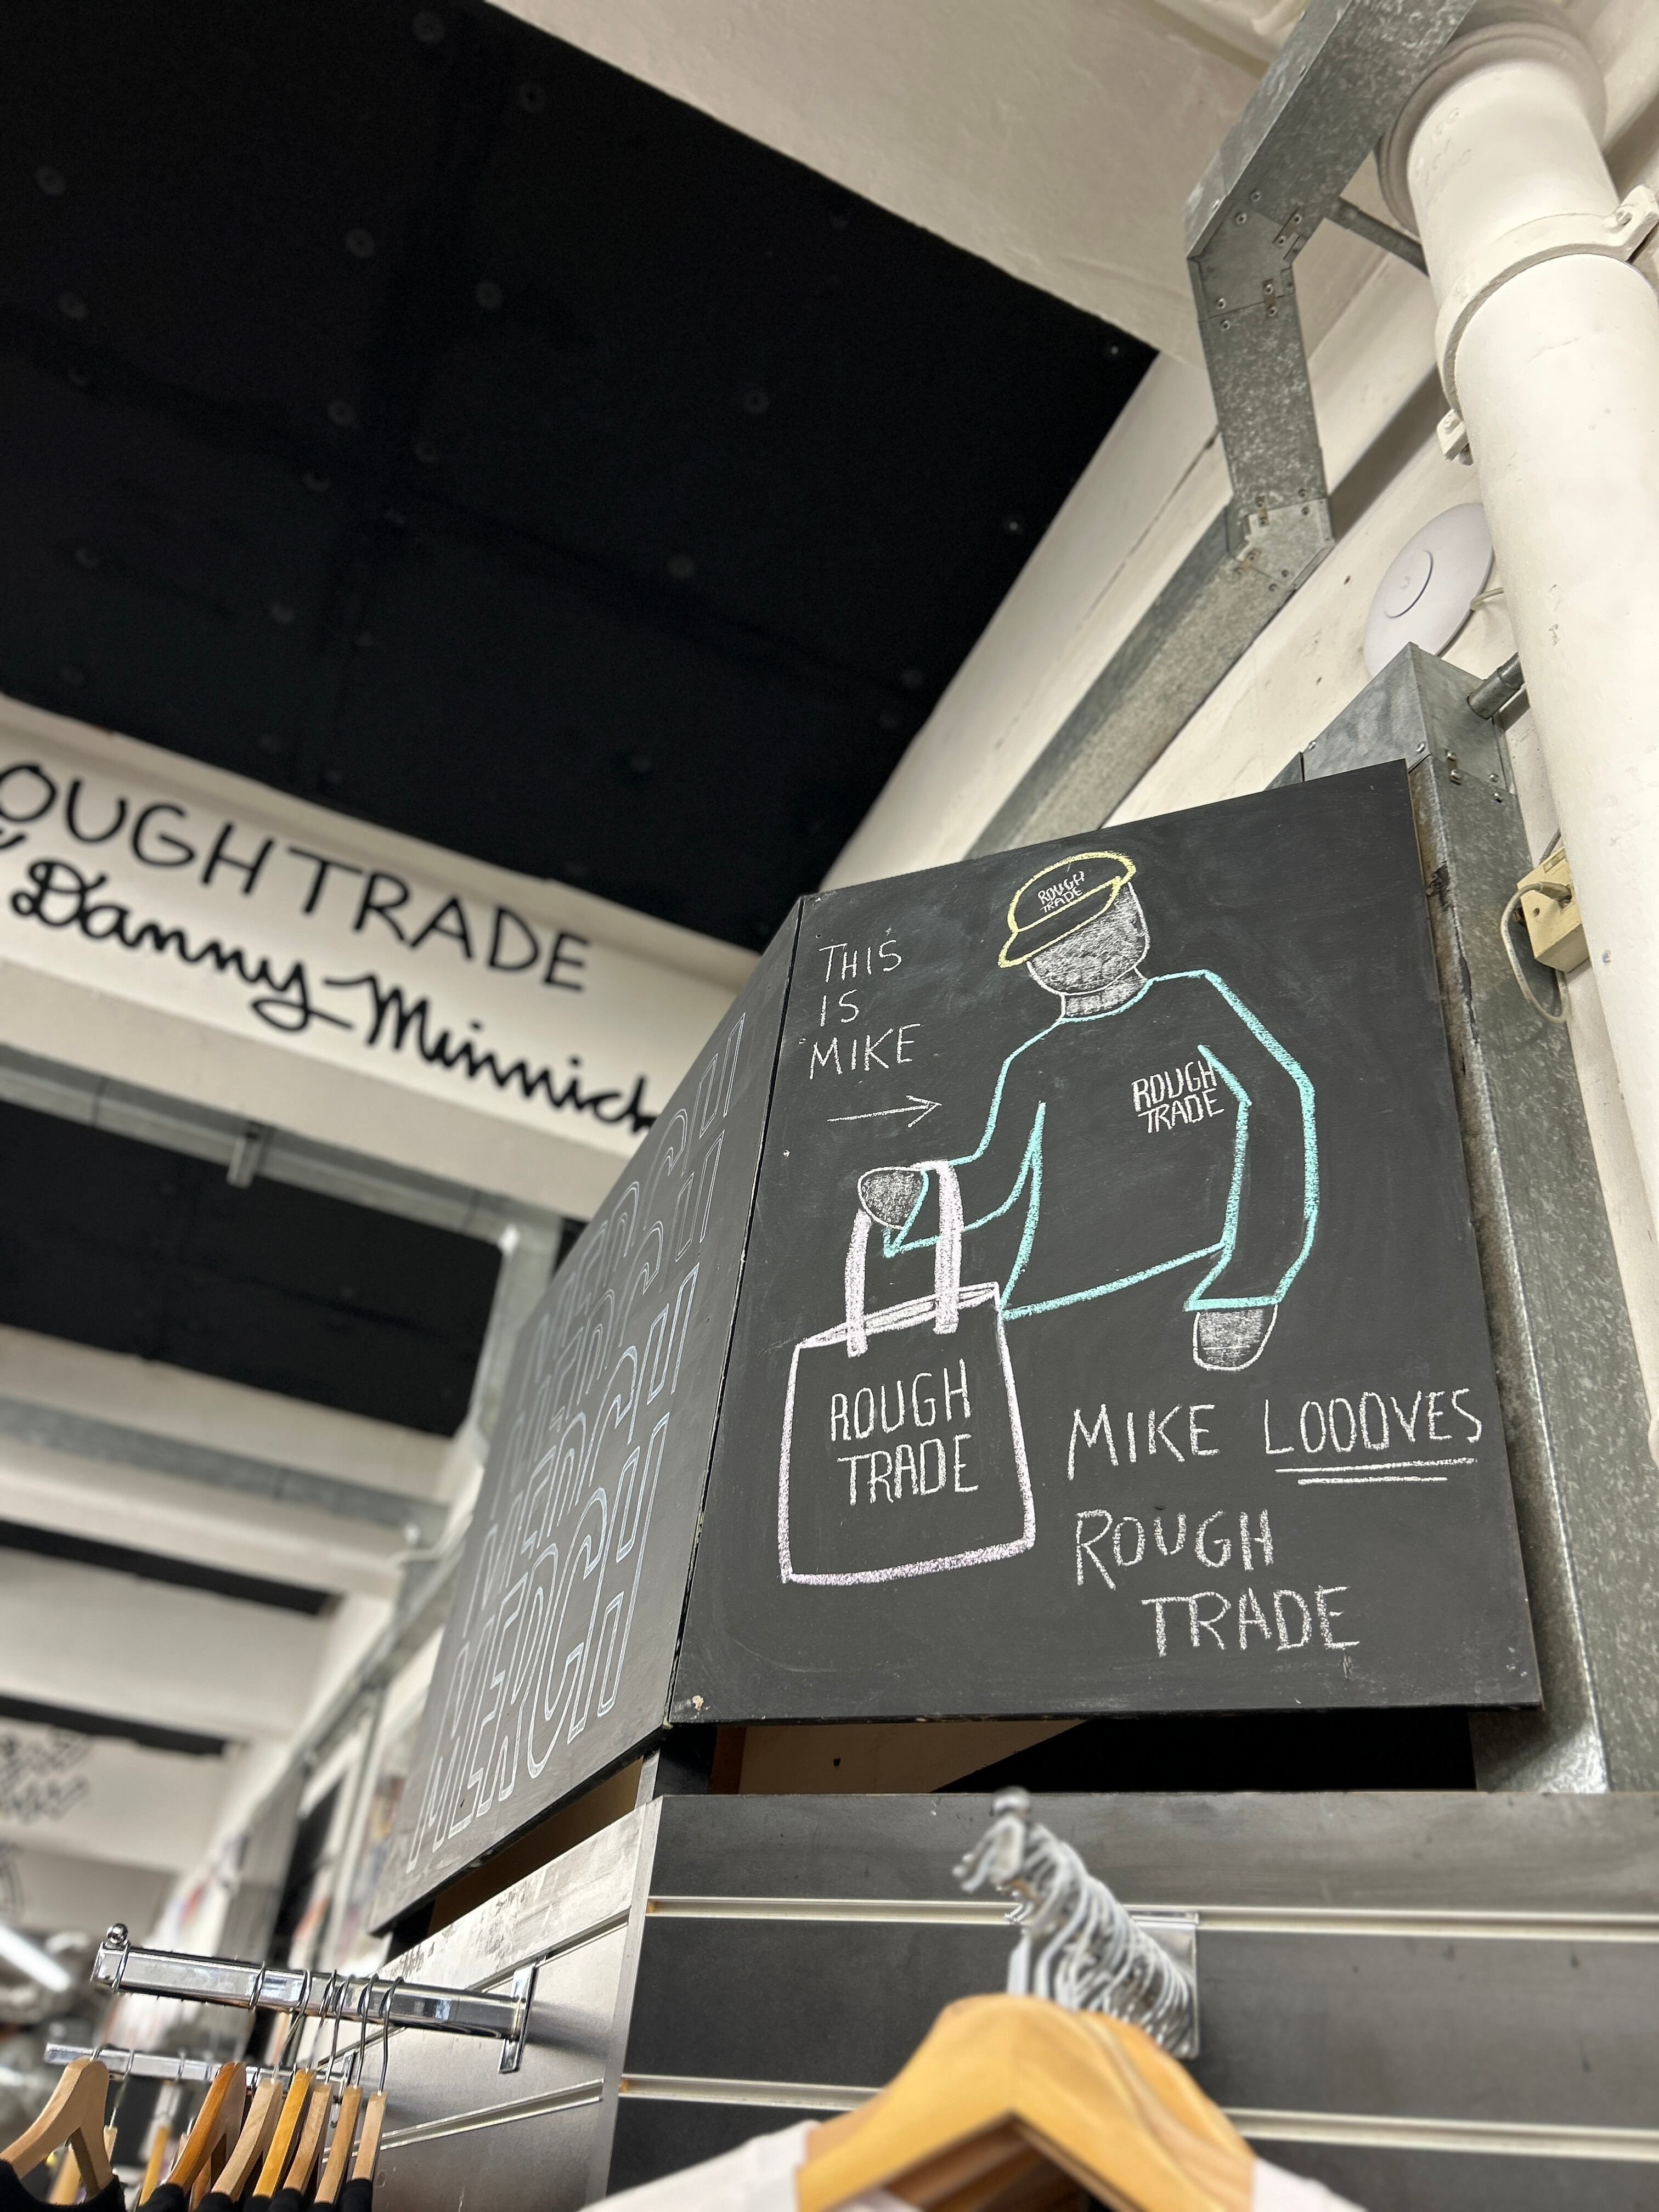 OUGH TRADE
Danny Minnick
THIS
IS
MIKE
ROUGH
TRADE
ROUGH
TRADE
ROUGH
TRADE
MIKE LOOOVES
ROUGH
TRADE
MERCH
MERCH
MERCH
MERCH
MERCH